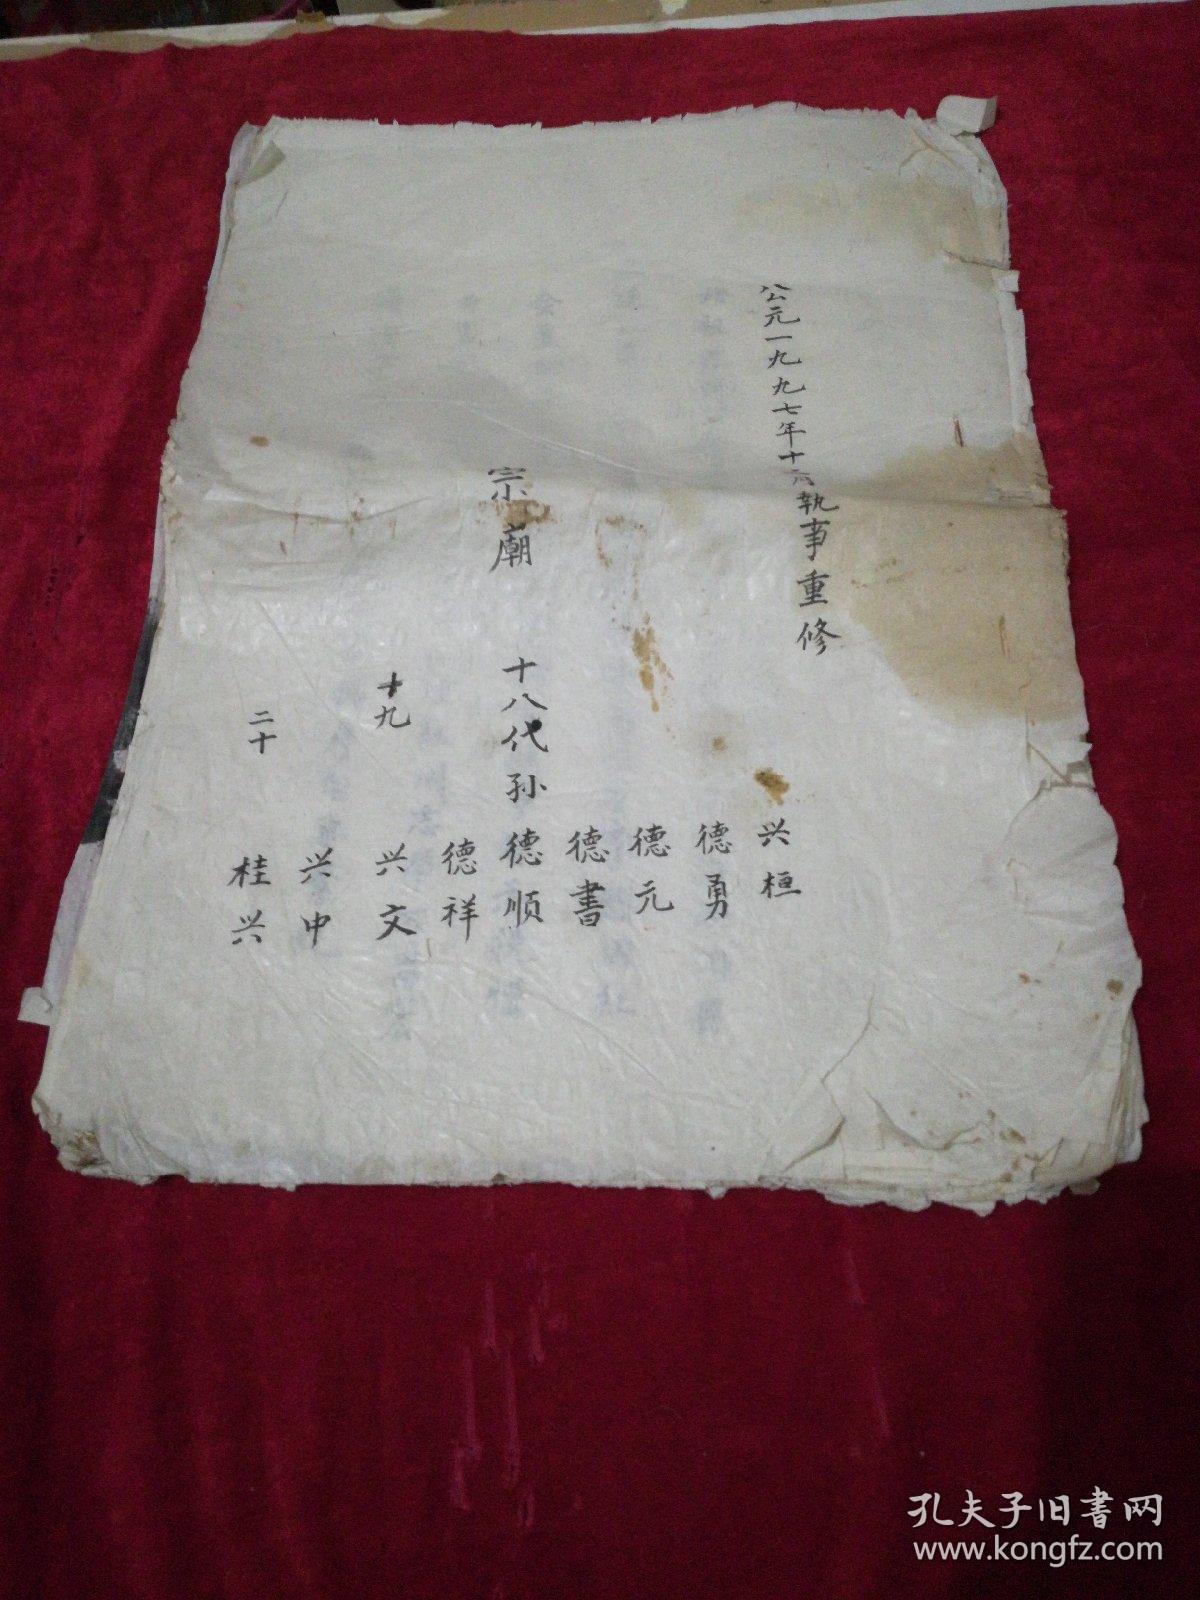 公元一九九七年十六执事重修
兴桓
德勇
德元
德書
宗廟 十八代孙 德顺
德祥
十九 兴文
兴中
二十 桂兴
孔夫子旧書网
www.kongfz.com